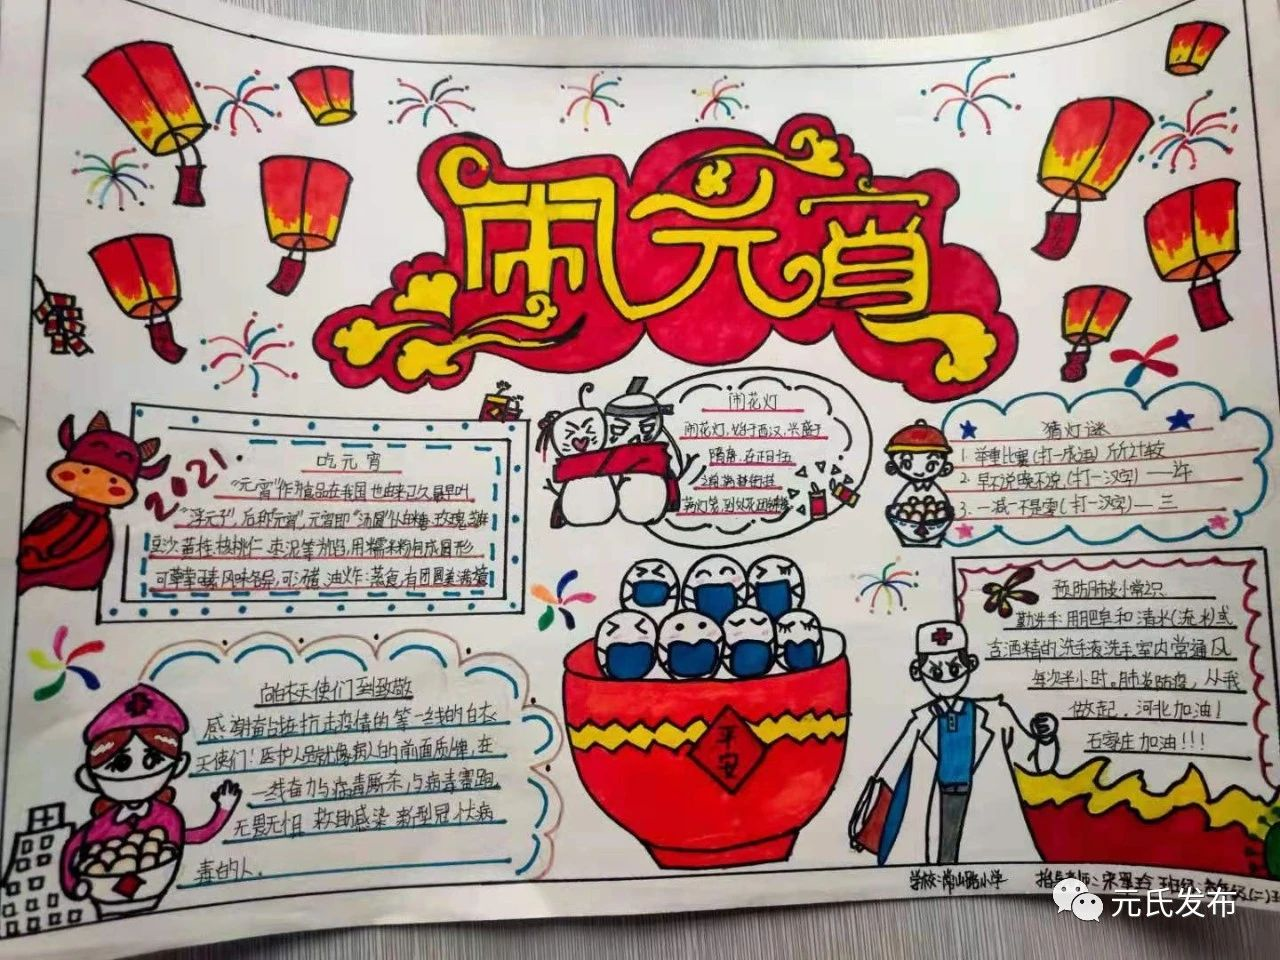 闹元宵
2021.
吃元宵
"元宵"作为食品在我国也由来已久最早叫
"浮元子",后称"元宵",元宵即"汤圆"以白糖、玫瑰、芝麻
豆沙、黄桂、核桃仁、枣泥等为馅,用糯米粉包成圆形
可荤可素风味各异,可汤煮、油炸、蒸食,有团圆美满之意
闹花灯
闹花灯,始于西汉,兴盛于
隋唐,在正月十五
之前满街挂
满灯笼,到处花团锦簇
猜灯谜
1. 举重比赛(打一成语) 斤斤计较
2. 早不说晚不说(打一汉字) 一许
3. 一减一不是零(打一汉字) 一 三
平安
向白衣天使们到致敬
感谢奋战在抗击疫情的第一线的白衣
天使们!医护人员就像病人的前面盾牌,在
一线奋力与病毒厮杀,与病毒赛跑,
无畏无惧 救助感染新型冠状病
毒的人.
预防肺炎小常识
勤洗手:用肥皂和清水(流水)或
含酒精的洗手液洗手,室内常通风
每次半小时。肺炎防疫,从我
做起,河北加油!
石家庄加油!!!
学校:常山路小学 指导老师:宋翠玲 班级:
元氏发布